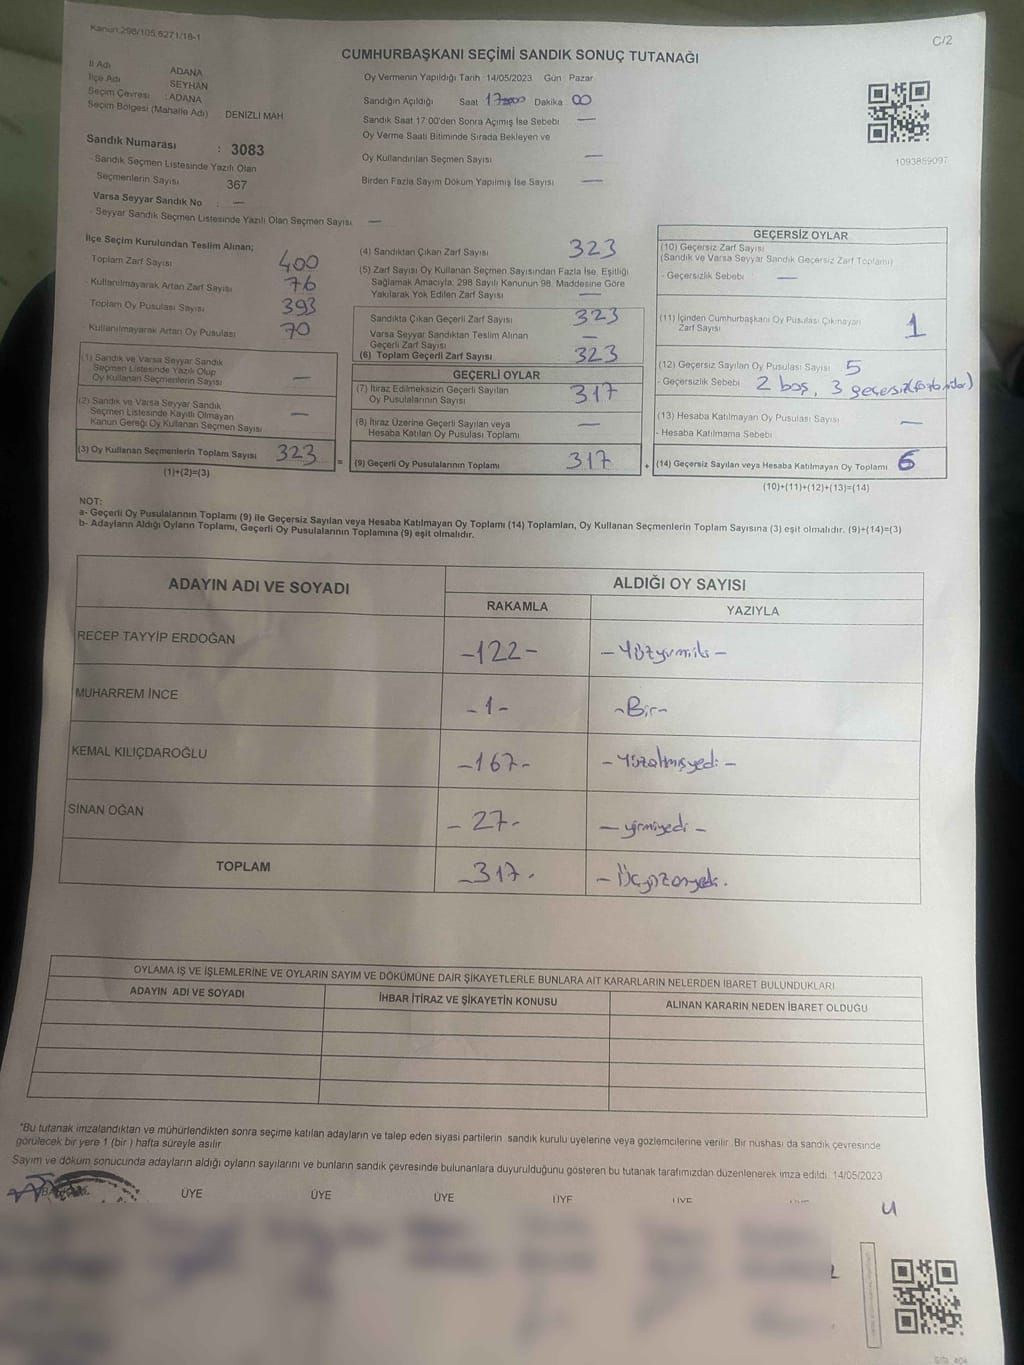 Kanun:298/105,6271/18-1
C/2
CUMHURBAŞKANI SEÇİMİ SANDIK SONUÇ TUTANAĞI
İl Adı ADANA
İlçe Adı SEYHAN
Seçim Çevresi : ADANA
Seçim Bölgesi (Mahalle Adı) DENİZLİ MAH
Sandık Numarası : 3083
- Sandık Seçmen Listesinde Yazılı Olan
Seçmenlerin Sayısı 367
Varsa Seyyar Sandık No : —
- Seyyar Sandık Seçmen Listesinde Yazılı Olan Seçmen Sayısı —
Oy Vermenin Yapıldığı Tarih :14/05/2023 Gün : Pazar
Sandığın Açıldığı Saat 17 Dakika 00
Sandık Saat 17:00'den Sonra Açımış İse Sebebi —
Oy Verme Saati Bitiminde Sırada Bekleyen ve
Oy Kullandırılan Seçmen Sayısı —
Birden Fazla Sayım Döküm Yapılmış İse Sayısı —
1093859097
İlçe Seçim Kurulundan Teslim Alınan;
- Toplam Zarf Sayısı 400
- Kullanılmayarak Artan Zarf Sayısı 76
- Toplam Oy Pusulası Sayısı 393
- Kullanılmayarak Artan Oy Pusulası 70
(1) Sandık ve Varsa Seyyar Sandık
Seçmen Listesinde Yazılı Olup
Oy Kullanan Seçmenlerin Sayısı —
(2) Sandık ve Varsa Seyyar Sandık
Seçmen Listesinde Kayıtlı Olmayan
Kanun Gereği Oy Kullanan Seçmen Sayısı —
(3) Oy Kullanan Seçmenlerin Toplam Sayısı 323
(1)+(2)=(3)
(4) Sandıktan Çıkan Zarf Sayısı 323
(5) Zarf Sayısı Oy Kullanan Seçmen Sayısından Fazla İse, Eşitliği
Sağlamak Amacıyla; 298 Sayılı Kanunun 98. Maddesine Göre
Yakılarak Yok Edilen Zarf Sayısı —
Sandıkta Çıkan Geçerli Zarf Sayısı 323
Varsa Seyyar Sandıktan Teslim Alınan
Geçerli Zarf Sayısı —
(6) Toplam Geçerli Zarf Sayısı 323
GEÇERLİ OYLAR
(7) İtiraz Edilmeksizin Geçerli Sayılan
Oy Pusulalarının Sayısı 317
(8) İtiraz Üzerine Geçerli Sayılan veya
Hesaba Katılan Oy Pusulası Toplamı —
= (9) Geçerli Oy Pusulalarının Toplamı 317
GEÇERSİZ OYLAR
(10) Geçersiz Zarf Sayısı
(Sandık ve Varsa Seyyar Sandık Geçersiz Zarf Toplamı)
- Geçersizlik Sebebi —
(11) İçinden Cumhurbaşkanı Oy Pusulası Çıkmayan
Zarf Sayısı 1
(12) Geçersiz Sayılan Oy Pusulası Sayısı 5
- Geçersizlik Sebebi 2 boş, 3 geçersiz
(13) Hesaba Katılmayan Oy Pusulası Sayısı —
- Hesaba Katılmama Sebebi
+ (14) Geçersiz Sayılan veya Hesaba Katılmayan Oy Toplamı 6
(10)+(11)+(12)+(13)=(14)
NOT:
a- Geçerli Oy Pusulalarının Toplamı (9) ile Geçersiz Sayılan veya Hesaba Katılmayan Oy Toplamı (14) Toplamları, Oy Kullanan Seçmenlerin Toplam Sayısına (3) eşit olmalıdır. (9)+(14)=(3)
b- Adayların Aldığı Oyların Toplamı, Geçerli Oy Pusulalarının Toplamına (9) eşit olmalıdır.
ADAYIN ADI VE SOYADI ALDIĞI OY SAYISI
RAKAMLA YAZIYLA
RECEP TAYYİP ERDOĞAN -122- -Yüzyirmiiki-
MUHARREM İNCE -1- -Bir-
KEMAL KILIÇDAROĞLU -167- -Yüzaltmışyedi-
SİNAN OĞAN -27- -yirmiyedi-
TOPLAM -317- -Üçyüzonyedi.
OYLAMA İŞ VE İŞLEMLERİNE VE OYLARIN SAYIM VE DÖKÜMÜNE DAİR ŞİKAYETLERLE BUNLARA AİT KARARLARIN NELERDEN İBARET BULUNDUKLARI
ADAYIN ADI VE SOYADI İHBAR İTİRAZ VE ŞİKAYETİN KONUSU ALINAN KARARIN NEDEN İBARET OLDUĞU
*Bu tutanak imzalandıktan ve mühürlendikten sonra seçime katılan adayların ve talep eden siyasi partilerin sandık kurulu üyelerine veya gözlemcilerine verilir. Bir nüshası da sandık çevresinde
görülecek bir yere 1 (bir) hafta süreyle asılır.
Sayım ve döküm sonucunda adayların aldığı oyların sayılarını ve bunların sandık çevresinde bulunanlara duyurulduğunu gösteren bu tutanak tarafımızdan düzenlenerek imza edildi. 14/05/2023
ÜYE ÜYE ÜYE ÜYE ÜYE